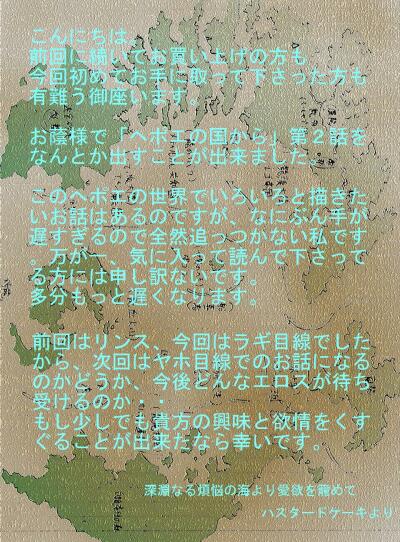 こんにちは。
前回に続いてお買い上げの方も
今回初めてお手に取って下さった方も
有難う御座います。
お蔭様で「ヘポエの国から」第２話を
なんとか出すことが出来ました。
このヘポエの世界でいろいろと描きた
いお話はあるのですが、なにぶん手が
遅すぎるので全然追っつかない私です
。万が一、気に入って読んで下さって
る方には申し訳ないです。
多分もっと遅くなります。
前回はリンス、今回はラギ目線でした
から、次回はヤホ目線でのお話になる
のかどうか、今後どんなエロスが待ち
受けるのか・・
もし少しでも貴方の興味と欲情をくす
ぐることが出来たなら幸いです。
深淵なる煩悩の海より愛欲を籠めて
ハスタードケーキより